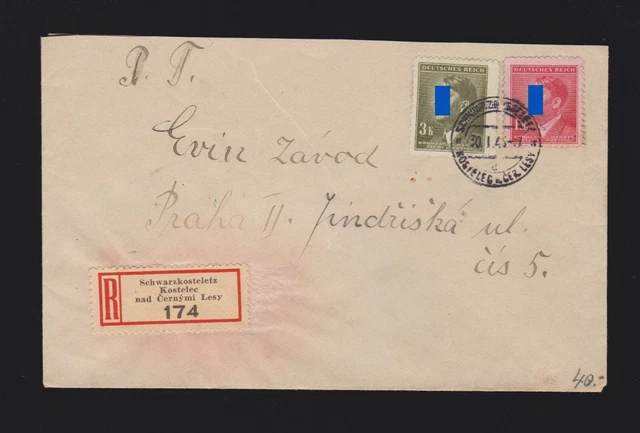 P. T.
DEUTSCHES REICH
DEUTSCHES REICH
3 K
Evin Závod
30.I.43-7
KOSTELEC N. ČER. LESY
Praha II. Jindřišká ul.
čís 5.
R
Schwarzkosteletz
Kostelec
nad Černými Lesy
174
40.-